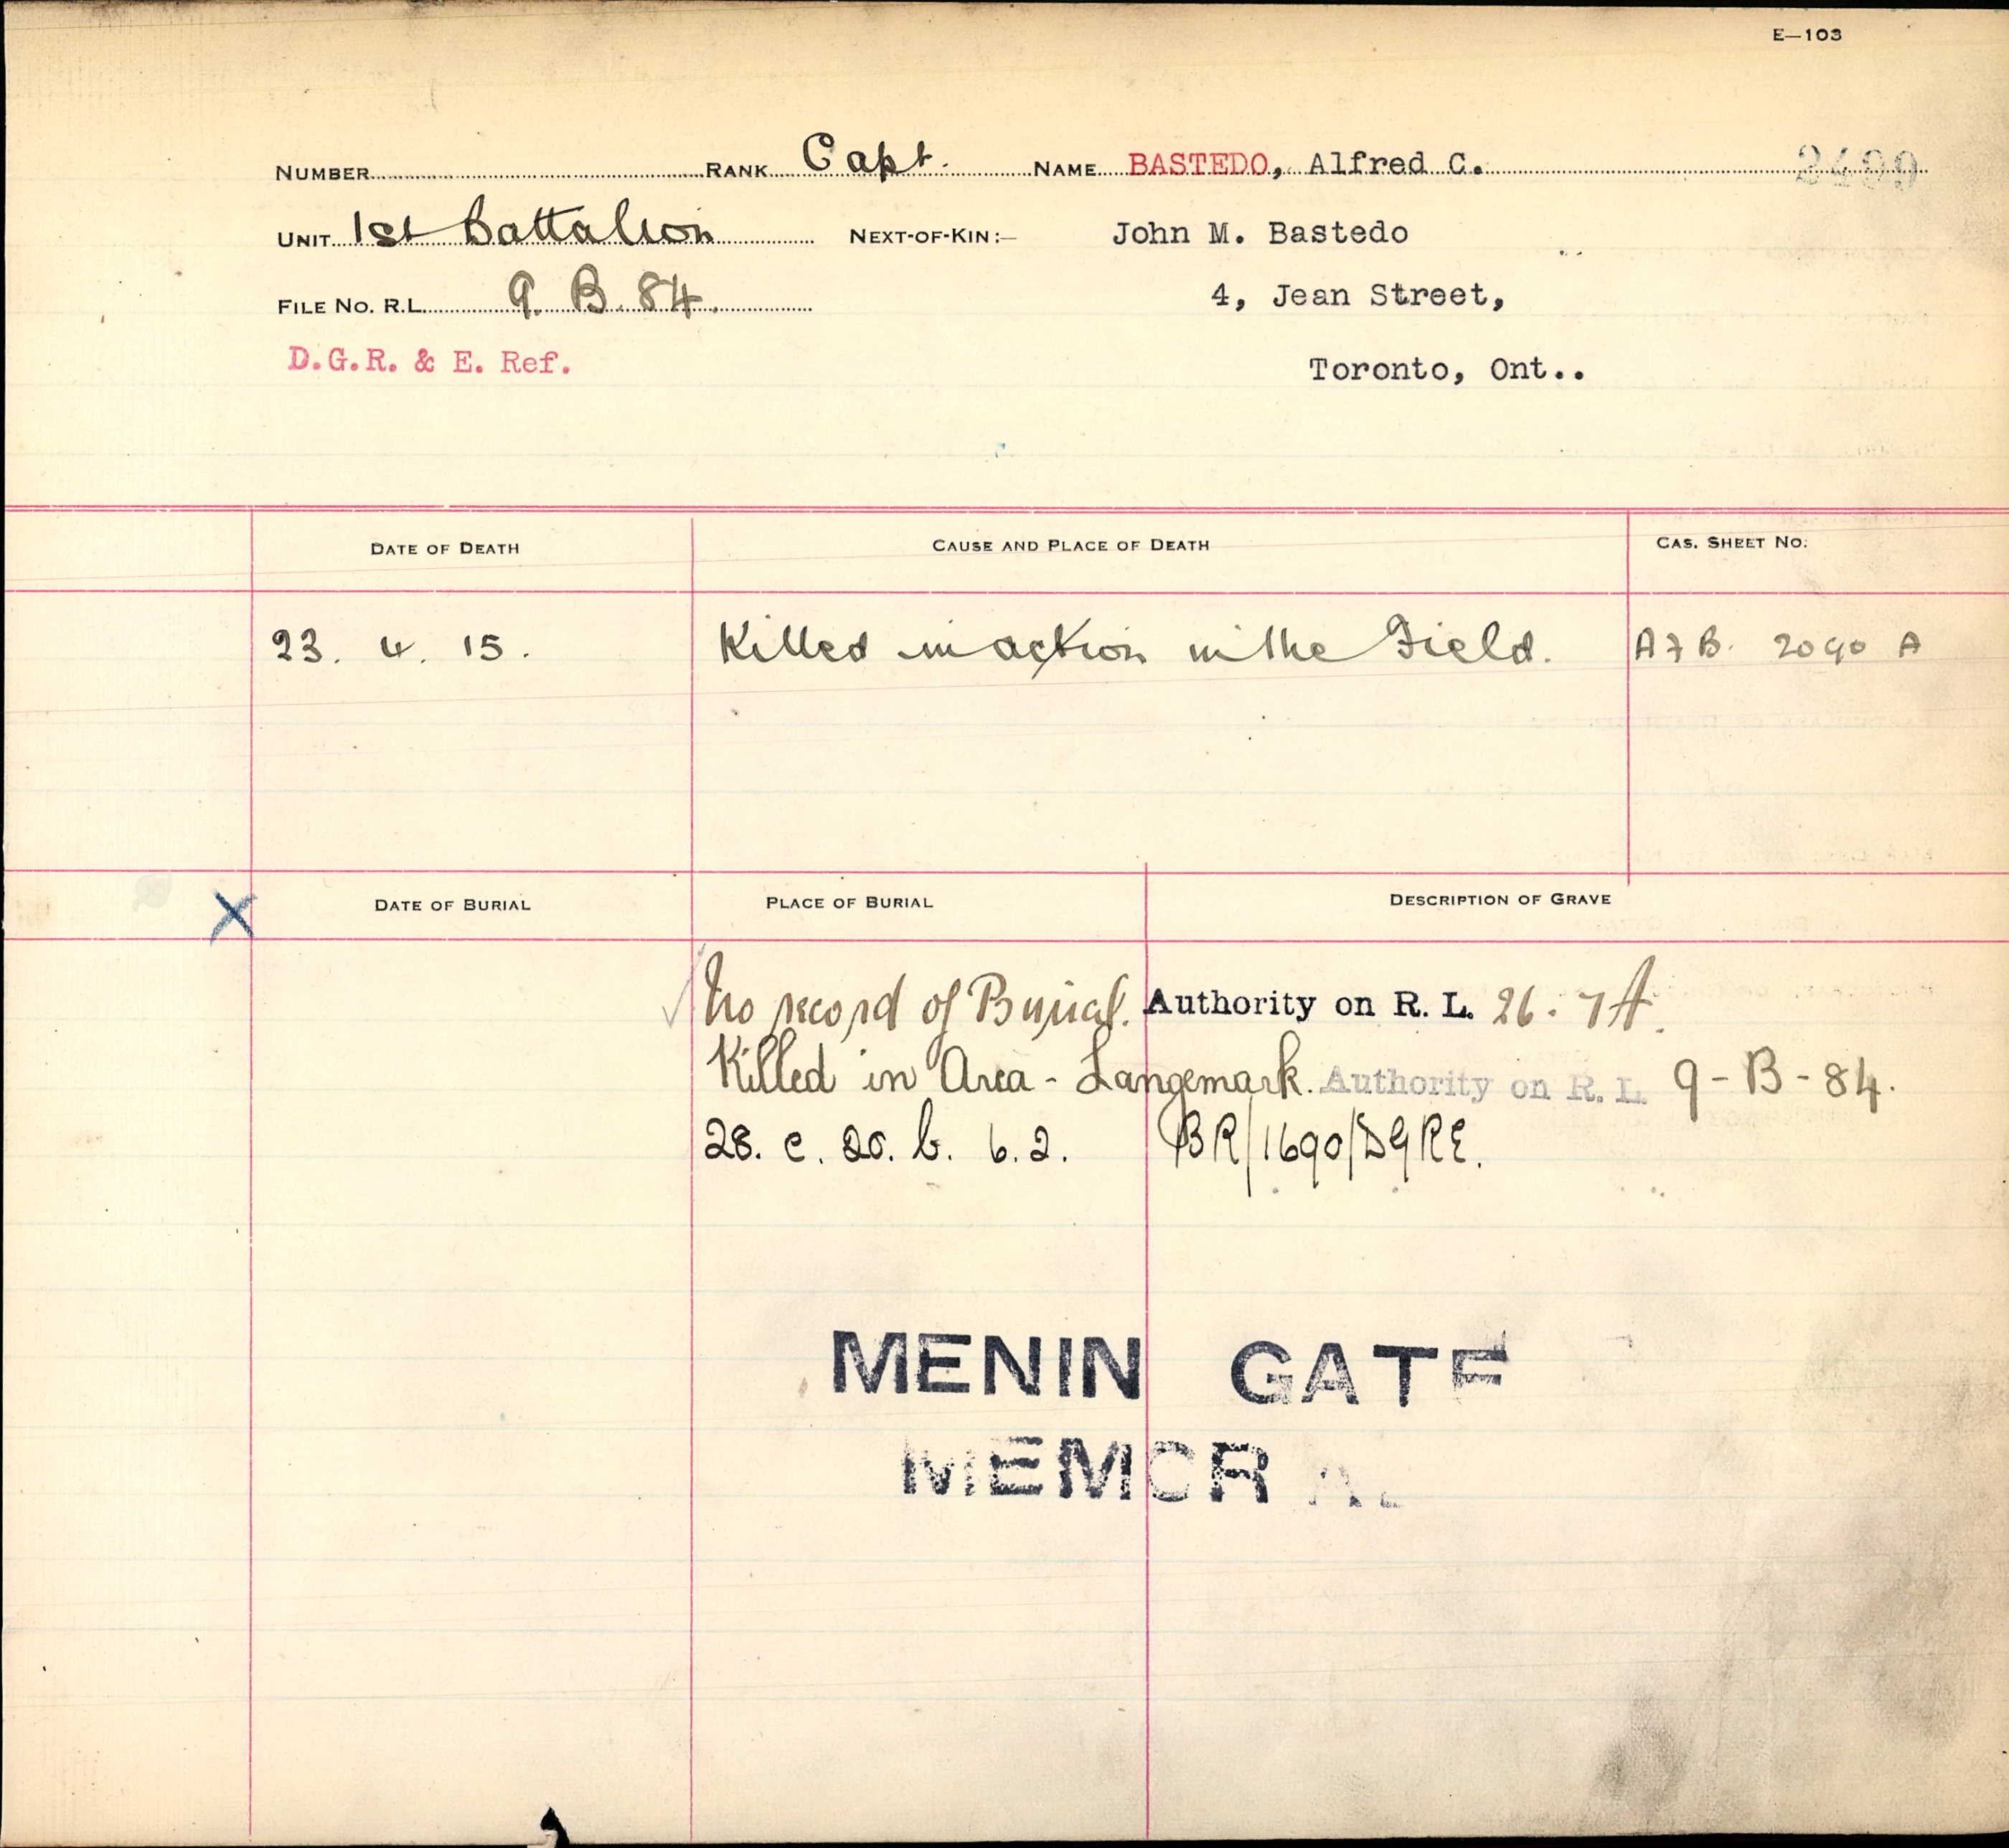 E—103
NUMBER RANK Capt. NAME BASTEDO, Alfred C. 3499
UNIT 1st Battalion NEXT-OF-KIN:— John M. Bastedo
FILE NO. R.L. 9. B. 84. 4, Jean Street,
D.G.R. & E. Ref. Toronto, Ont..
DATE OF DEATH CAUSE AND PLACE OF DEATH CAS. SHEET NO.
23. 4. 15. Killed in action in the Field. A F B. 2090 A
X DATE OF BURIAL PLACE OF BURIAL DESCRIPTION OF GRAVE
No record of Burial. Authority on R. L. 26. 7A.
Killed in Area - Langemark. Authority on R. L. 9 - B - 84.
28. c. 20. b. 6. 2. BR/1690/DGRE.
MENIN GATE
MEMORIAL